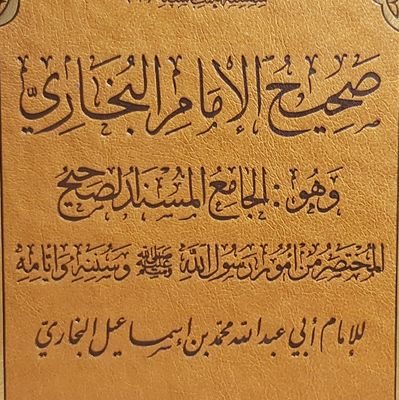 صَحِيحُ الإِمَامِ البُخَارِيِّ
وَهُوَ : الجَامِعُ المُسْنَدُ الصَّحِيحُ
المُخْتَصَرُ مِنْ أُمُورِ رَسُولِ اللَّهِ ﷺ وَسُنَنِهِ وَأَيَّامِهِ
للإمام أبي عبد الله محمد بن إسماعيل البخاري